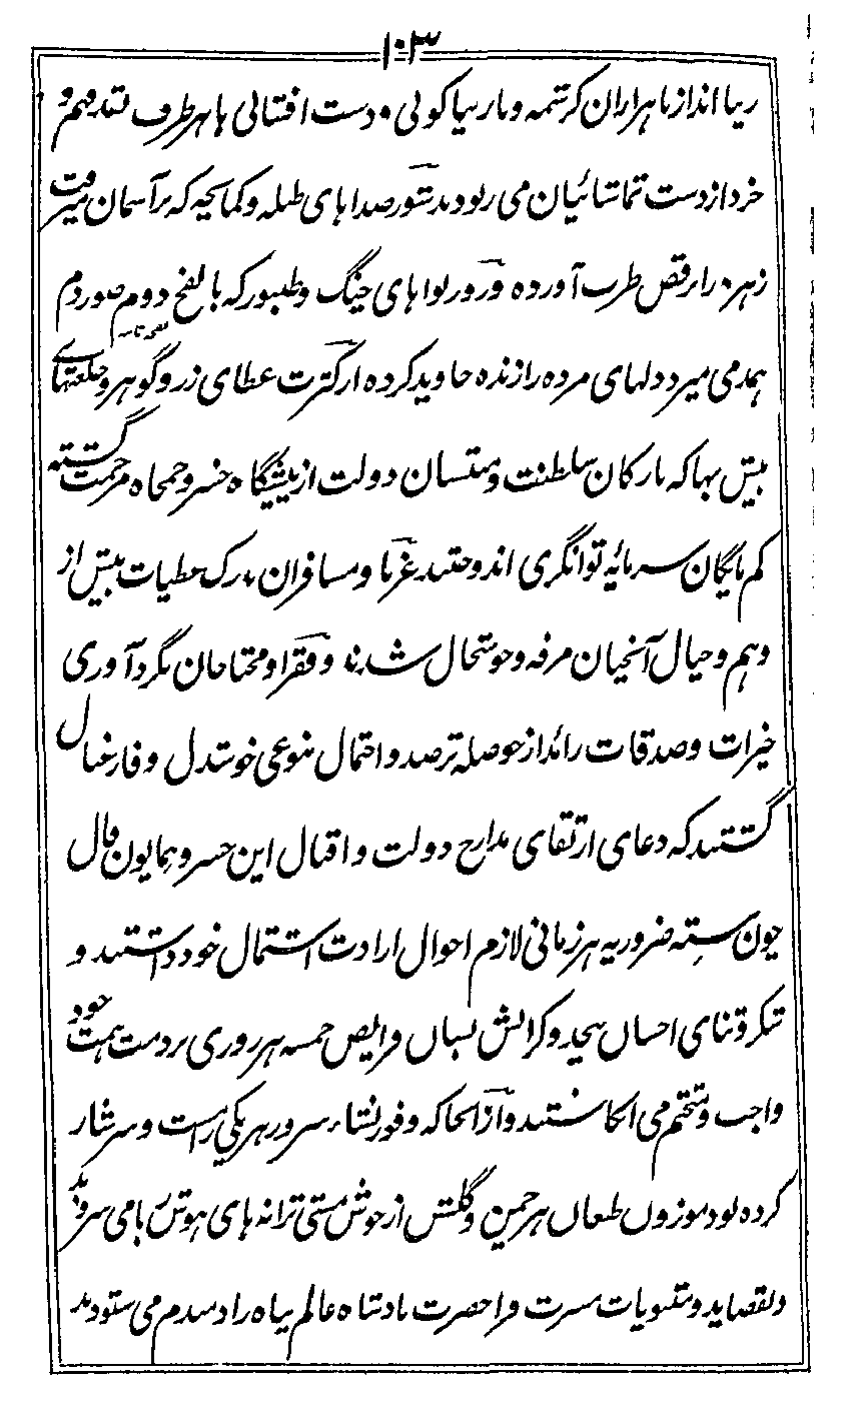 ۱۰۳
زیبا انداز با هزاران کرشمه و ناز بپاکوبی و دست افشانی با هر طرف نقد فهم و
خرد از دست تماشائیان می ربودند شور صداهای طبله و کمانچه که بر آسمان میرفت
زهره را برقص طرب آورده و زور نواهای چنگ و طنبور که با نفخ دوم صور دم
همدمی میزد دلهای مرده را زنده جاوید کرده از کثرت عطای زر و گوهر و خلعتهای
بیش بها که بارکان سلطنت و منتسبان دولت از پیشگاه خسرو جمجاه مرحمت گشته
کم مایگان سرمایه توانگری اندوختند غربا و مسافران بدرک عطیات بیش از
وهم و خیال آنچنان مرفه و خوشحال شدند و فقرا و محتاجان بگردآوری
خیرات و صدقات زائد از حوصله ترصد و احتمال بنوعی خوشدل و فارغبال
گشتند که دعای ارتقای مدارج دولت و اقبال این خسرو همایون فال
چون سنته ضروریه هر زمانی لازم احوال ارادت اشتمال خود داشتند و
شکر و ثنای احسان بیحد و کرانش بسان فرایض خمسه هر روزی بر ذمت همت خود
واجب و متحتم می انگاشتند و از آنجا که وفور نشاء سرور هر یکی را مست و سرشار
کرده بود موزون طبعان هر چمن و گلشن از جوش مستی ترانه های هوش ربا می سرودند
و بقصاید و مثنویات مسرت فزا حضرت بادشاه عالم پناه را دمبدم می ستودند